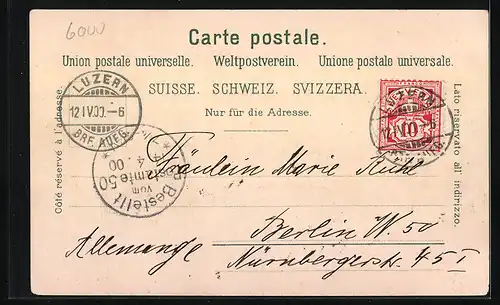 6000
Carte postale.
Union postale universelle. Weltpostverein. Unione postale universale.
SUISSE. SCHWEIZ. SVIZZERA.
Nur für die Adresse.
Côté réservé à l'adresse.
Lato riservato all' indirizzo.
LUZERN
12 IV.00.-6
BRF. AUFG.
LUZERN
12 IV.00.-6
10
Bestellt
vom
Postamte 50
4. 00
Fräulein Marie
Berlin W. 50
Allemange Nürnbergerstr. 45 I